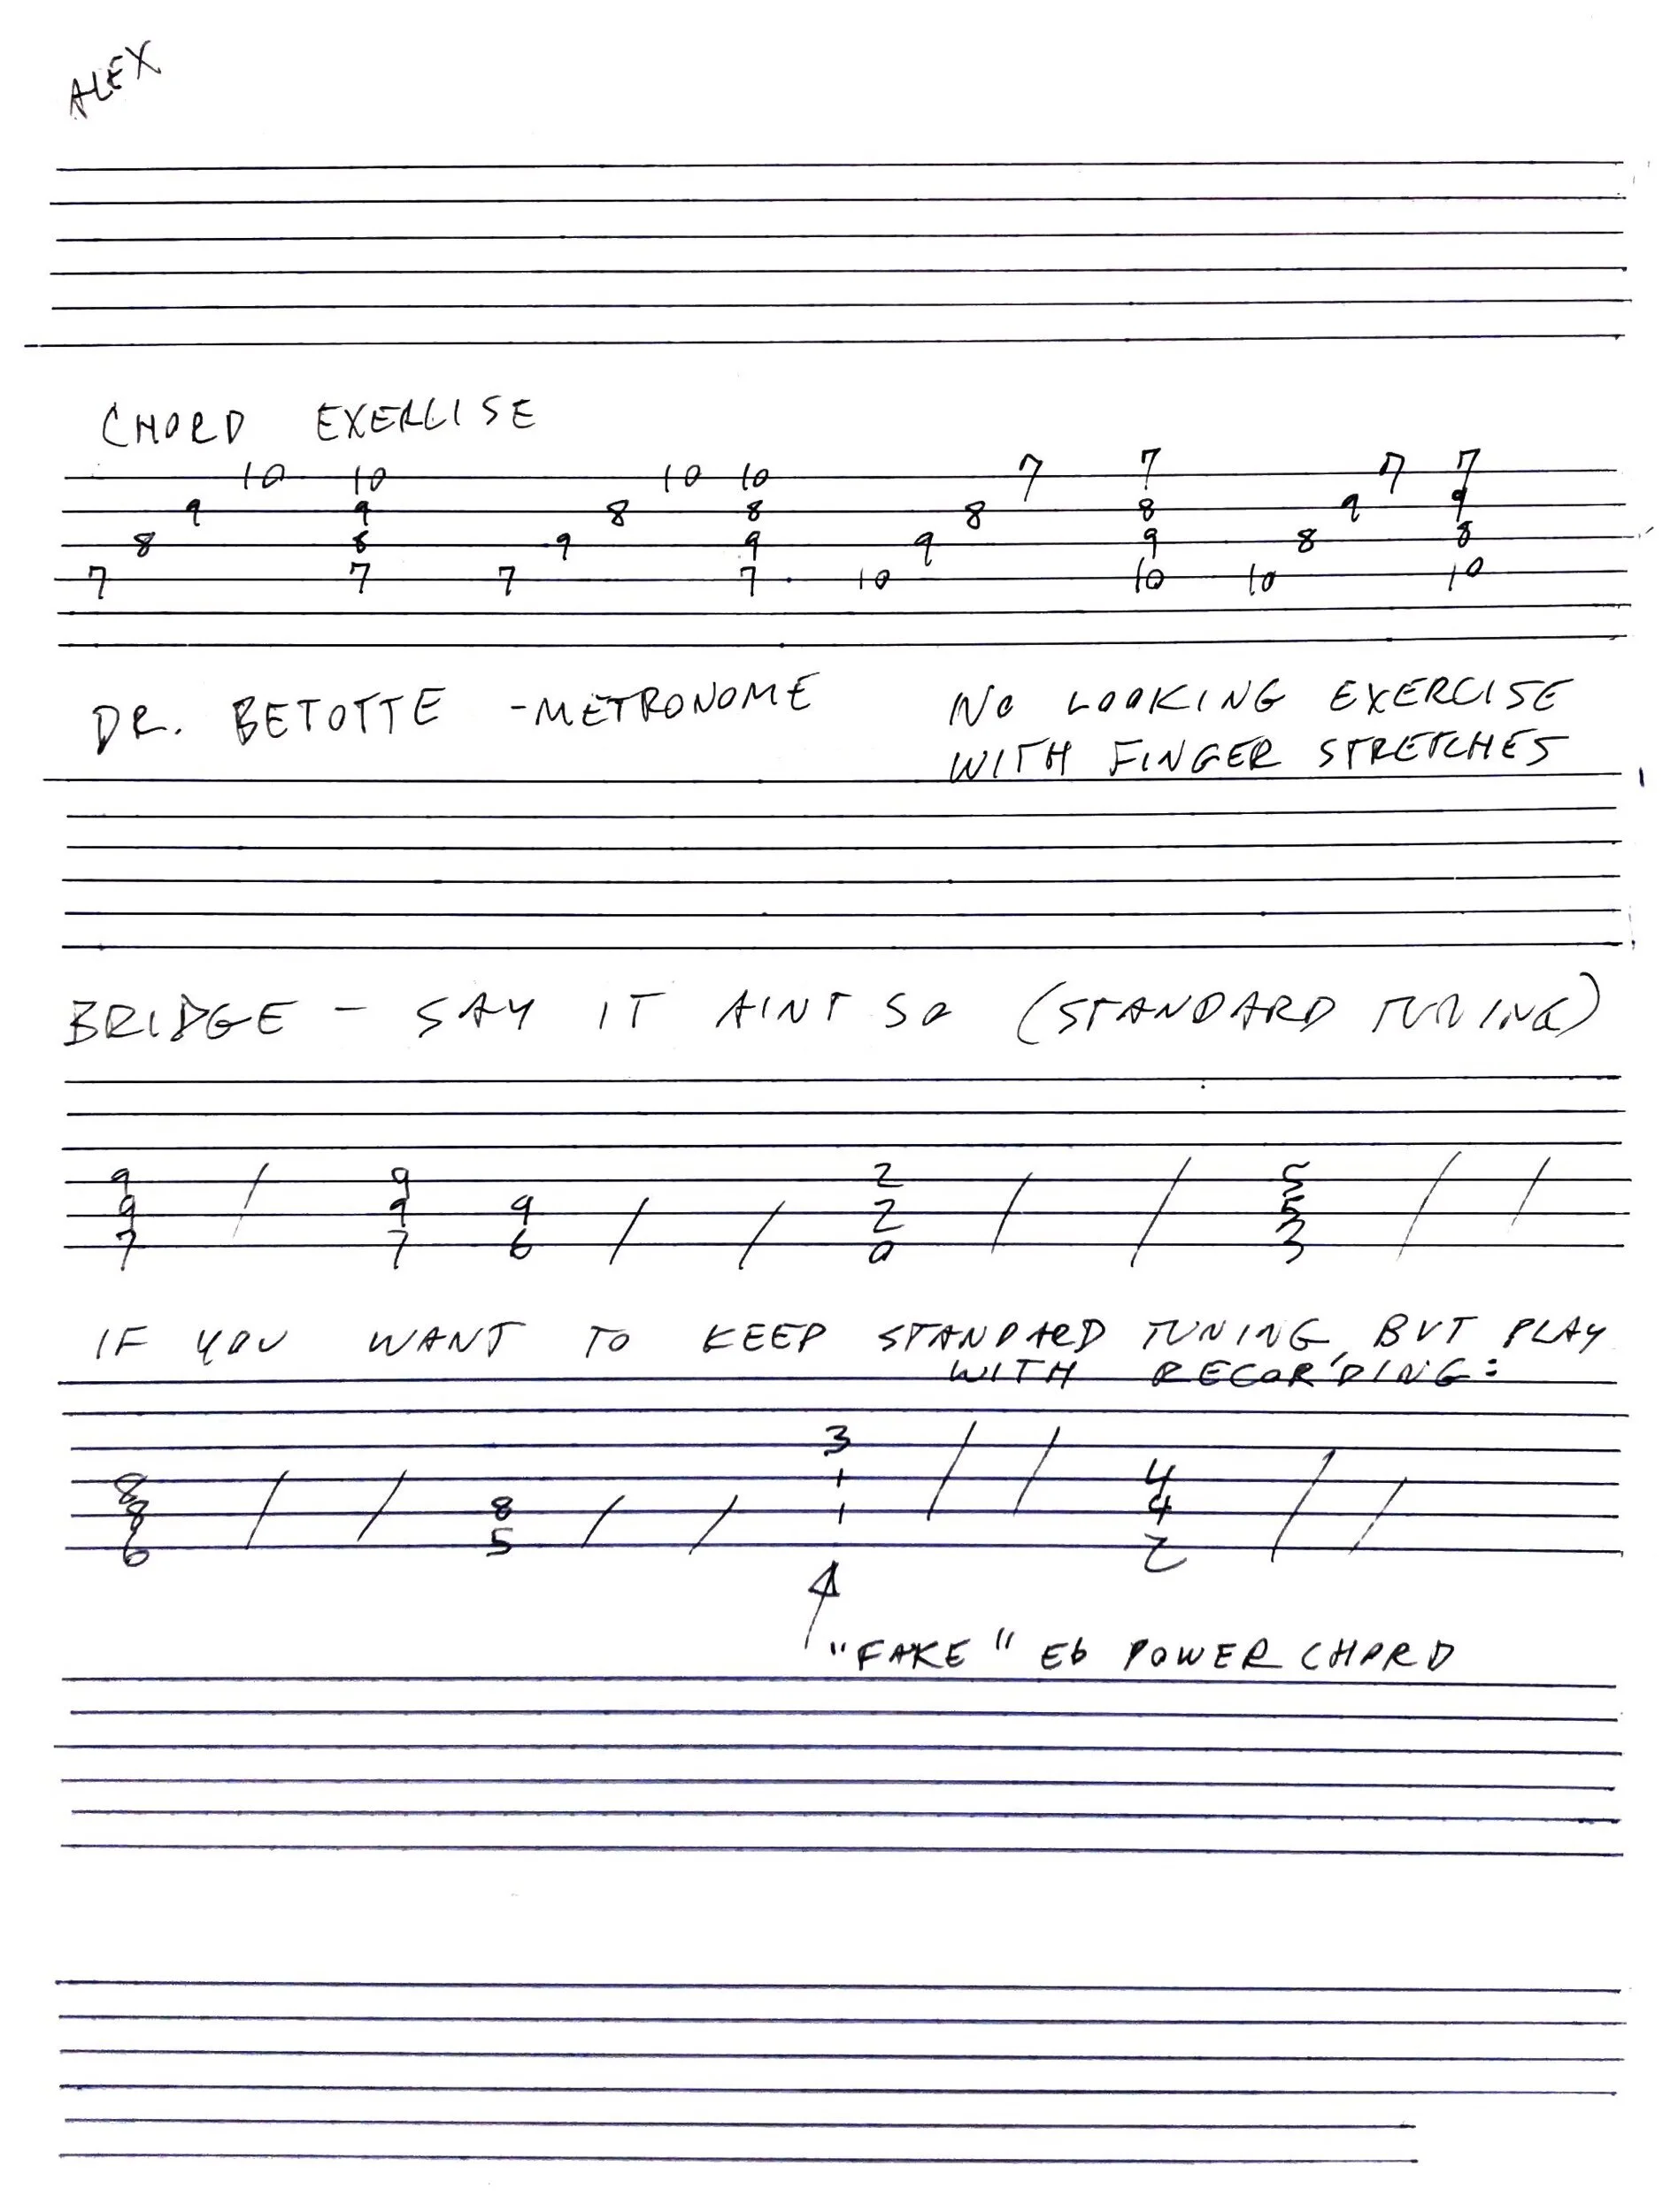 ALEX
CHORD EXERCISE
10 10 10 10 7 7 7 7
9 9 8 8 8 8 9 9
8 8 9 9 9 9 8 8
7 7 7 7 10 10 10 10
DR. BETOTTE - METRONOME NO LOOKING EXERCISE
WITH FINGER STRETCHES
BRIDGE - SAY IT AINT SO (STANDARD TUNING)
9 / 9 2 / / 5 / /
9 9 9 / / 2 5
7 7 6 0 3
IF YOU WANT TO KEEP STANDARD TUNING, BUT PLAY
WITH RECORDING:
3 / /
8 / / 1 4 / /
8 8 / / 1 4
6 5 2
"FAKE" Eb POWER CHORD